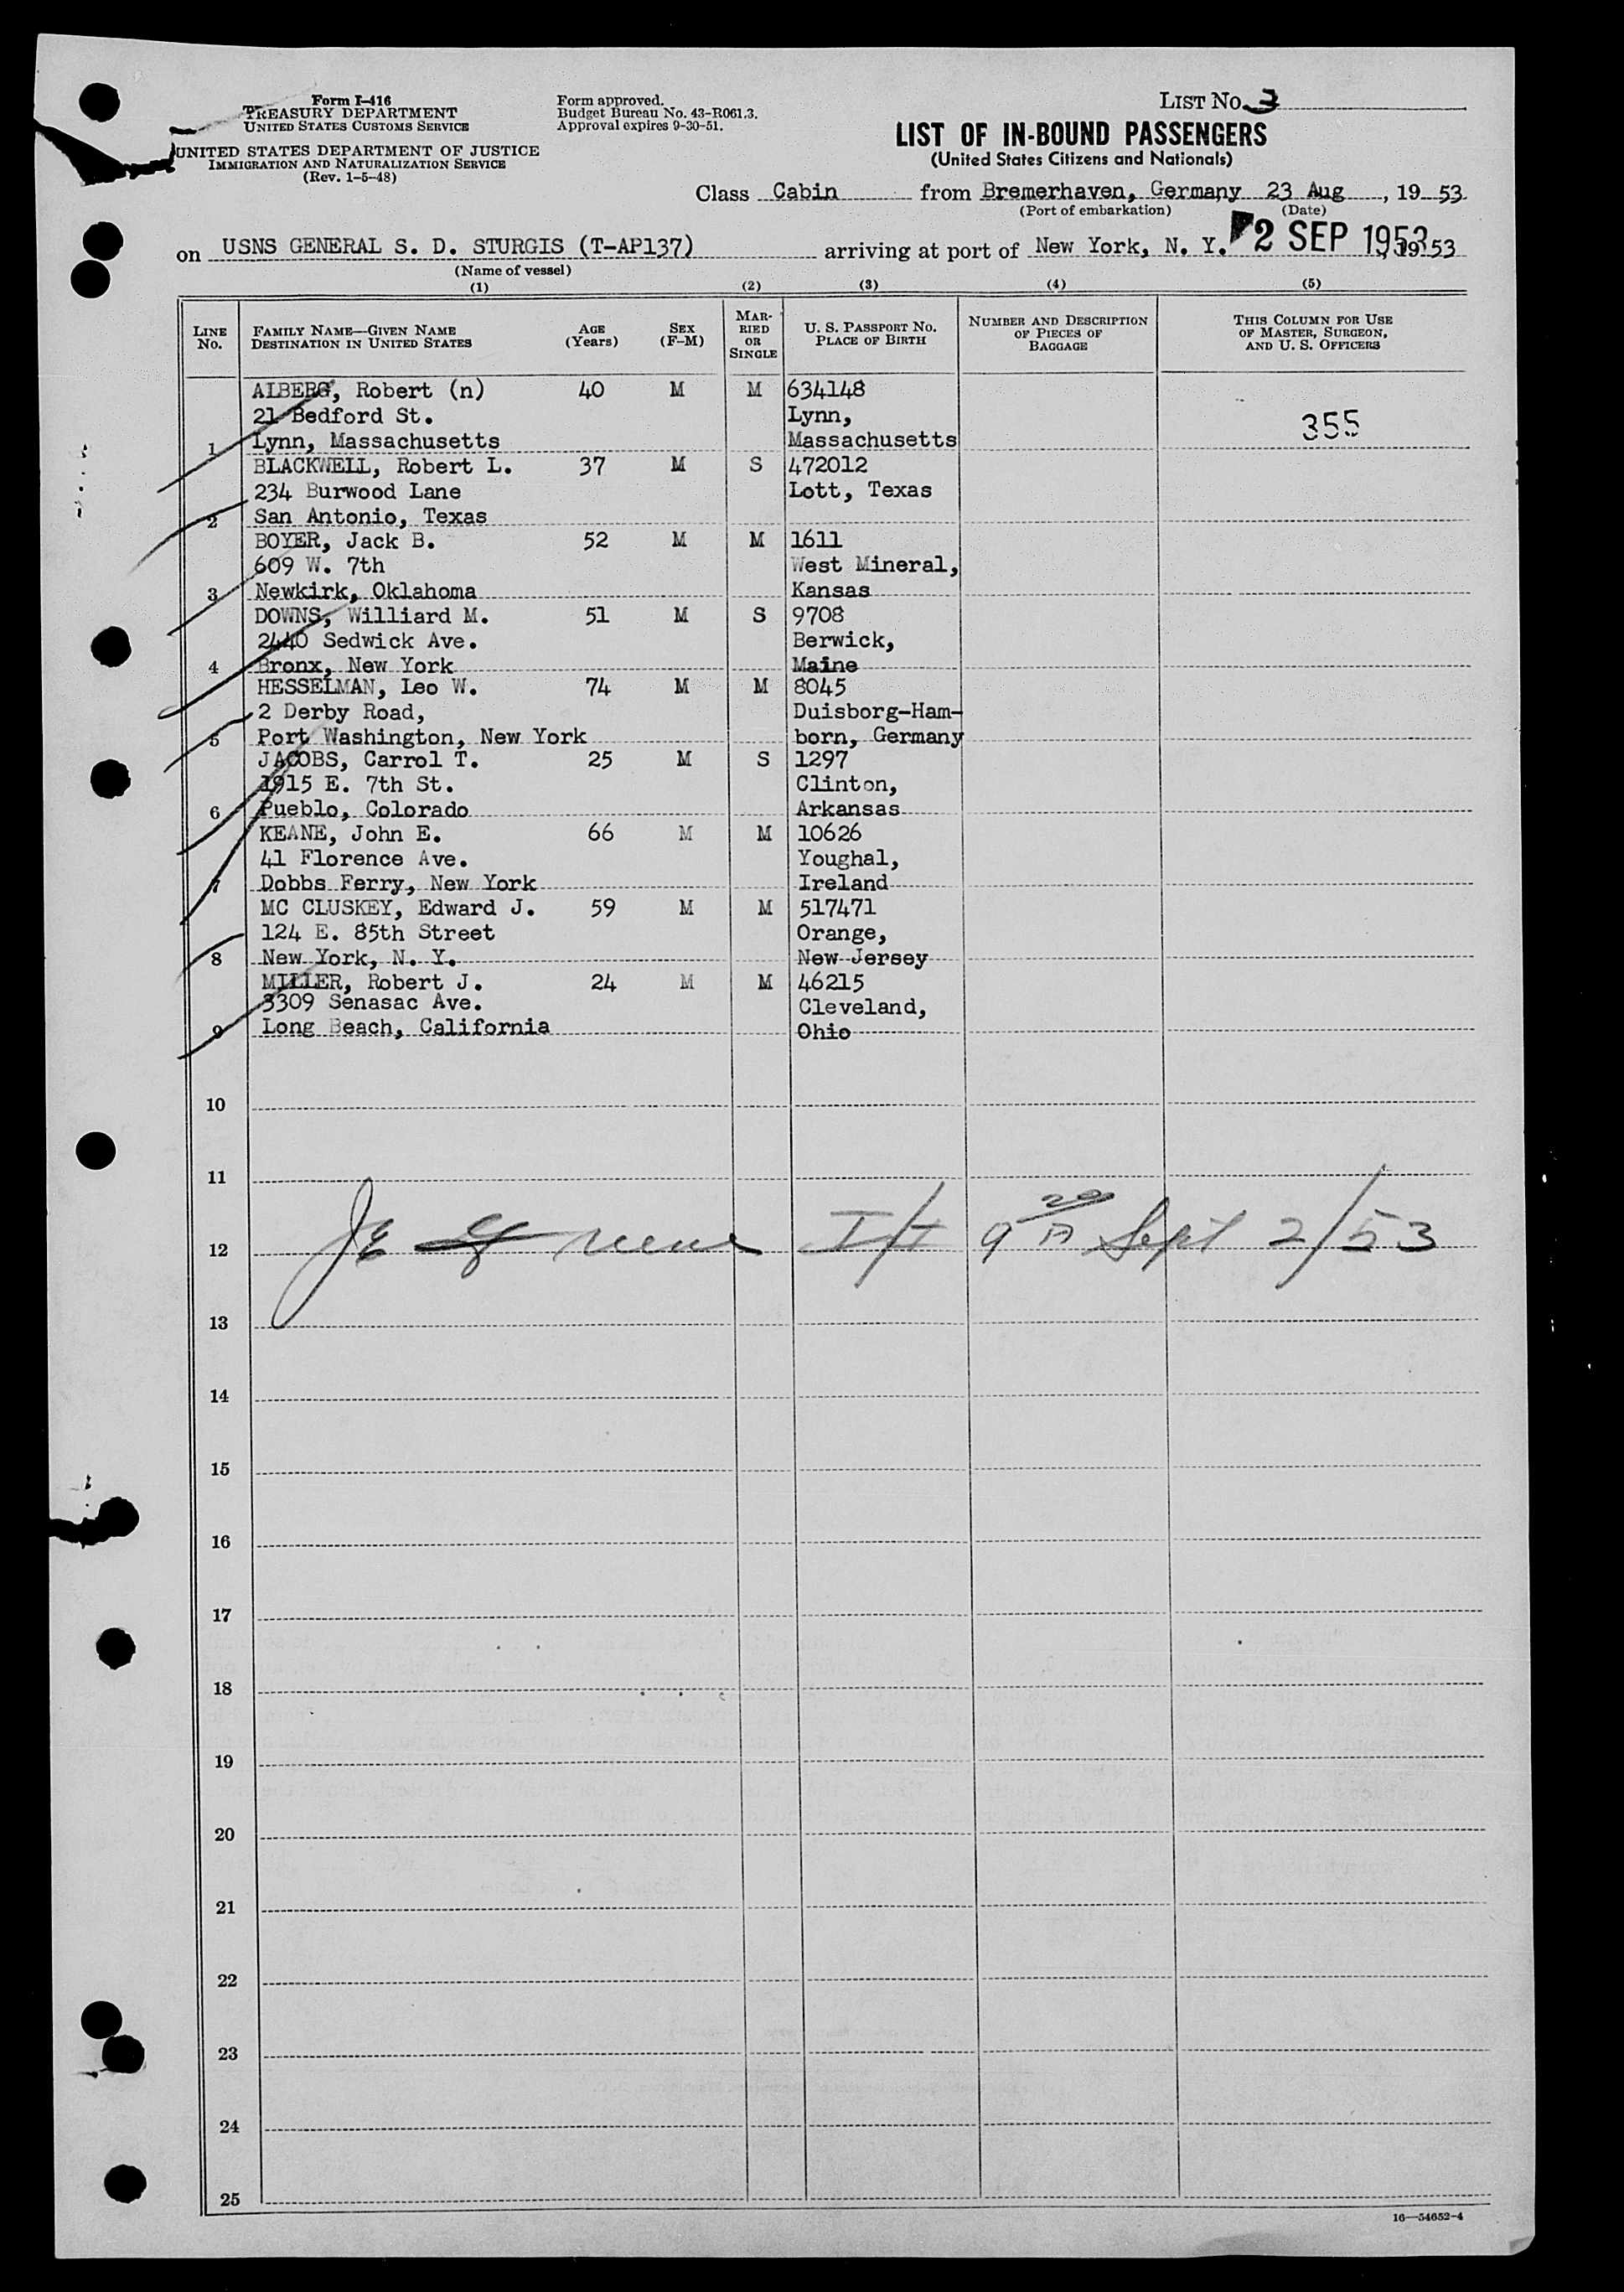 Form I-416
TREASURY DEPARTMENT
UNITED STATES CUSTOMS SERVICE
UNITED STATES DEPARTMENT OF JUSTICE
IMMIGRATION AND NATURALIZATION SERVICE
(Rev. 1-5-48)
Form approved.
Budget Bureau No. 43-R061.3.
Approval expires 9-30-51.
LIST No. 3
LIST OF IN-BOUND PASSENGERS
(United States Citizens and Nationals)
Class Cabin from Bremerhaven, Germany 23 Aug, 19 53
(Port of embarkation) (Date)
on USNS GENERAL S. D. STURGIS (T-AP137) arriving at port of New York, N. Y. 2 SEP 1953, 19 53
(Name of vessel)
(1) (2) (3) (4) (5)
LINE No. FAMILY NAME—GIVEN NAME DESTINATION IN UNITED STATES AGE (Years) SEX (F-M) MARRIED OR SINGLE U. S. PASSPORT No. PLACE OF BIRTH NUMBER AND DESCRIPTION OF PIECES OF BAGGAGE THIS COLUMN FOR USE OF MASTER, SURGEON, AND U. S. OFFICERS
ALBERG, Robert (n) 40 M M 634148
21 Bedford St. Lynn, 355
1 Lynn, Massachusetts Massachusetts
BLACKWELL, Robert L. 37 M S 472012
234 Burwood Lane Lott, Texas
2 San Antonio, Texas
BOYER, Jack B. 52 M M 1611
609 W. 7th West Mineral,
3 Newkirk, Oklahoma Kansas
DOWNS, Williard M. 51 M S 9708
2440 Sedwick Ave. Berwick,
4 Bronx, New York Maine
HESSELMAN, Leo W. 74 M M 8045
2 Derby Road, Duisborg-Ham-
5 Port Washington, New York born, Germany
JACOBS, Carrol T. 25 M S 1297
1915 E. 7th St. Clinton,
6 Pueblo, Colorado Arkansas
KEANE, John E. 66 M M 10626
41 Florence Ave. Youghal,
7 Dobbs Ferry, New York Ireland
MC CLUSKEY, Edward J. 59 M M 517471
124 E. 85th Street Orange,
8 New York, N. Y. New Jersey
MILLER, Robert J. 24 M M 46215
3309 Senasac Ave. Cleveland,
9 Long Beach, California Ohio
10
11
12 Sept 2/53
13
14
15
16
17
18
19
20
21
22
23
24
25
16—54652-4